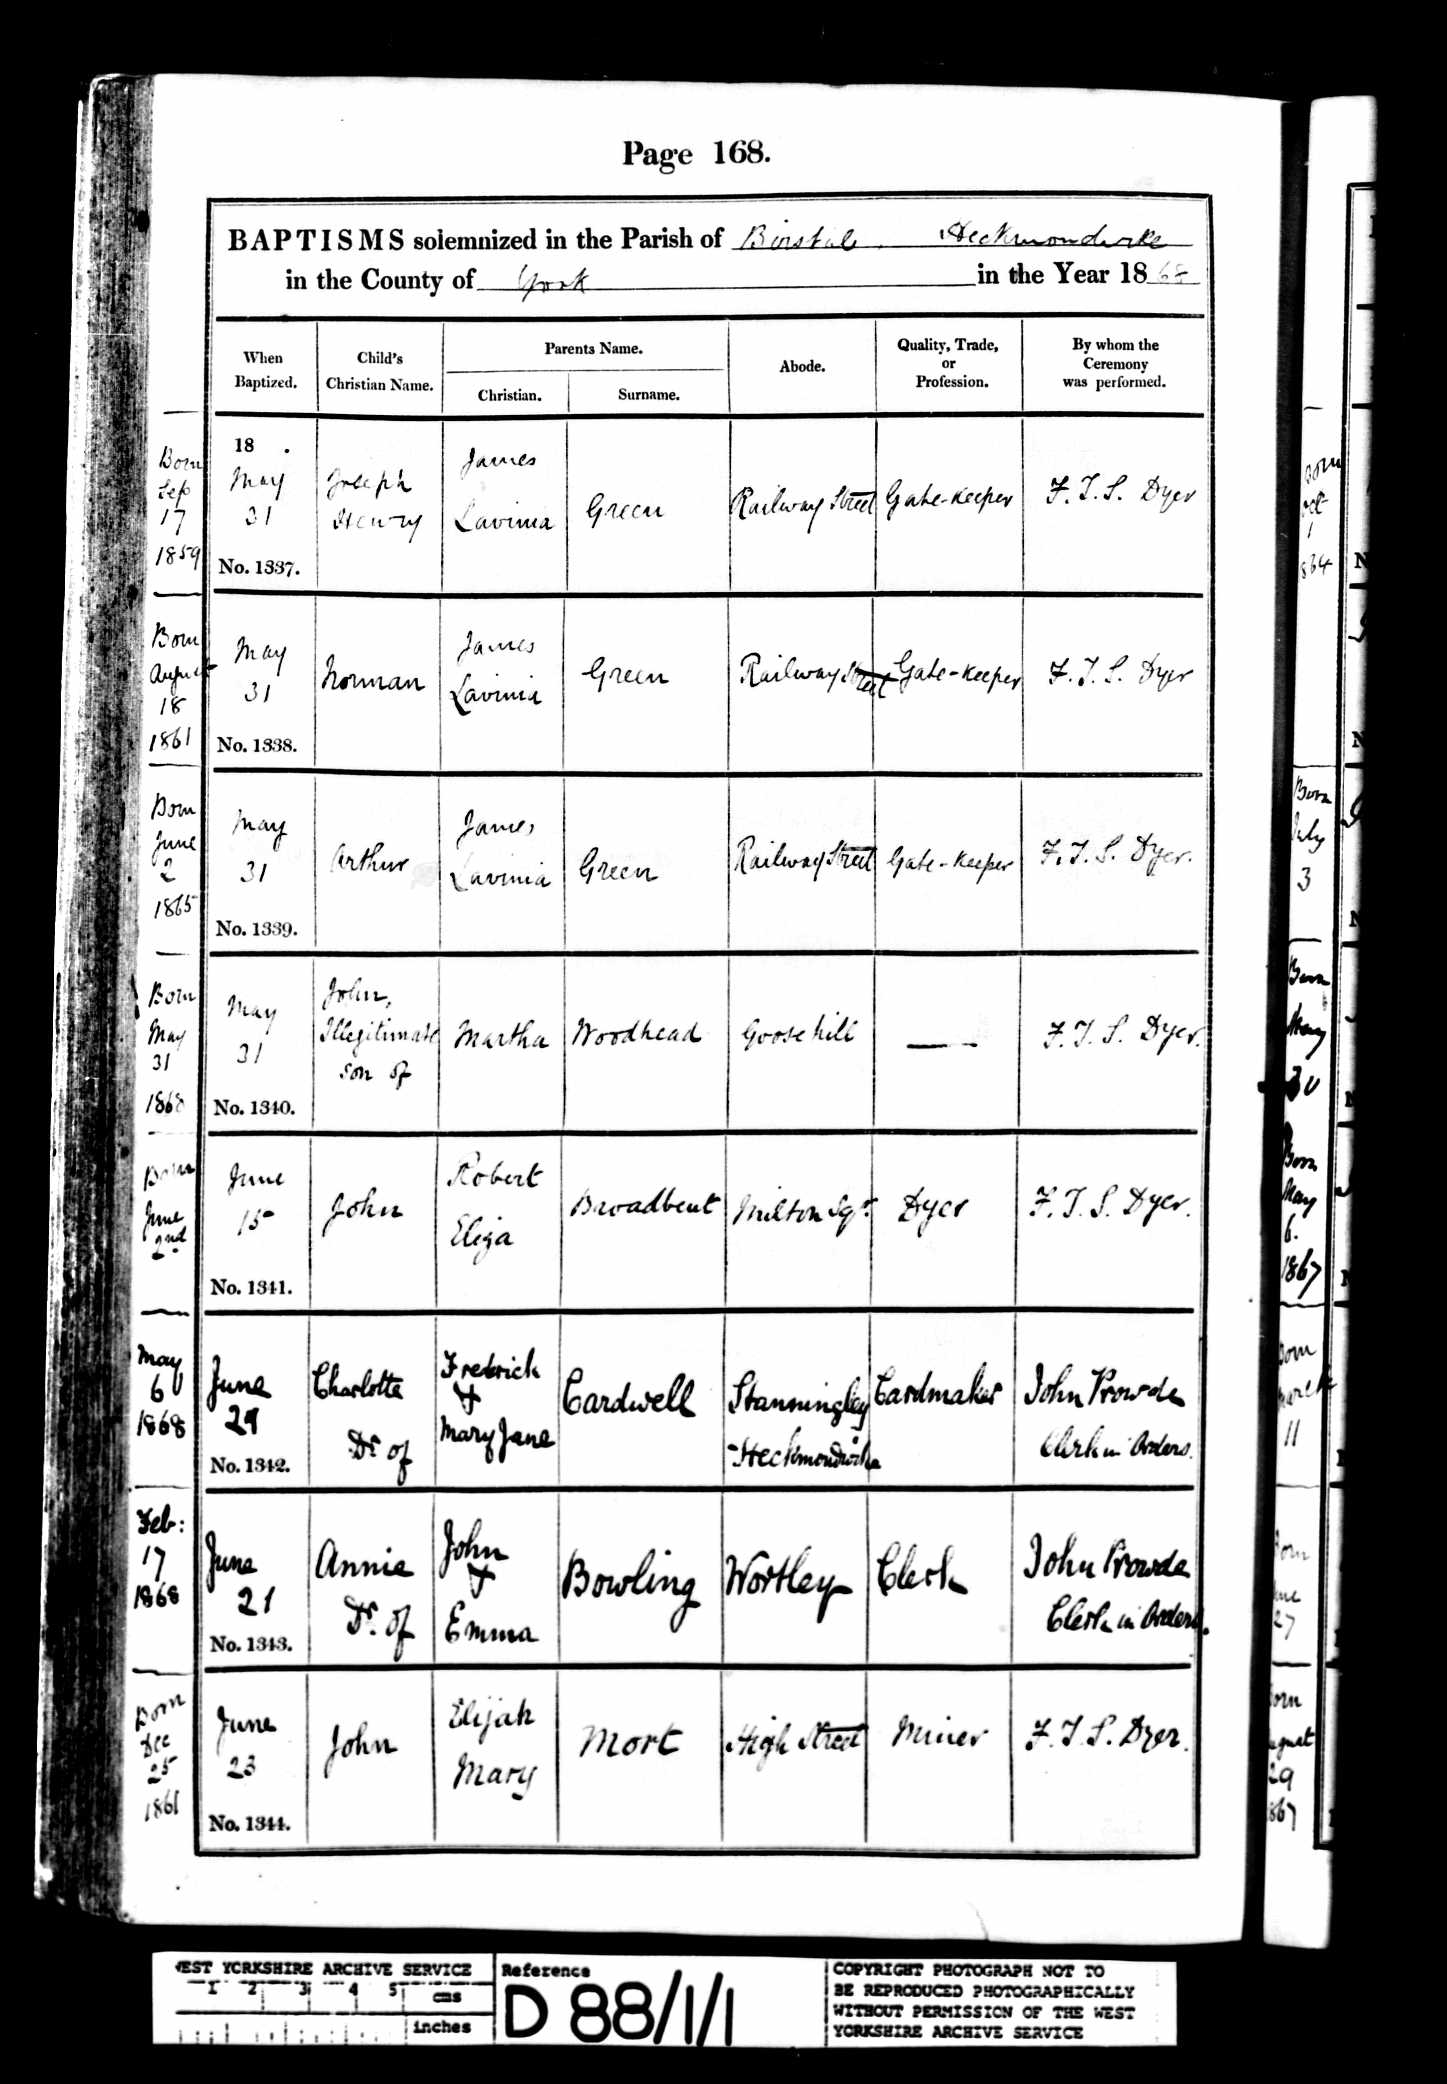 Page 168.
BAPTISMS solemnized in the Parish of Birstal Heckmondwike
in the County of York in the Year 1868
When Baptized. Child's Christian Name. Parents Name. Christian. Surname. Abode. Quality, Trade, or Profession. By whom the Ceremony was performed.
Born Sep 17 1859
18 . May 31 No. 1337.
Joseph Henry
James Lavinia
Green
Railway Street
Gate-keeper
F. T. S. Dyer
Born August 18 1861
May 31 No. 1338.
Norman
James Lavinia
Green
Railway Street
Gate-keeper
F. T. S. Dyer
Born June 2 1865
May 31 No. 1339.
Arthur
James Lavinia
Green
Railway Street
Gate-keeper
F. T. S. Dyer.
Born May 31 1868
May 31 No. 1340.
John, Illegitimate son of
Martha
Woodhead
Goose hill
—
F. T. S. Dyer.
Born June 2nd
June 15 No. 1341.
John
Robert Eliza
Broadbent
Milton Sqr.
Dyer
F. T. S. Dyer.
May 6 1868
June 29 No. 1342.
Charlotte Dr. of
Frederick & Mary Jane
Cardwell
Stanningley Heckmondwike
Cardmaker
John Prowde Clerk in Orders.
Feb: 17 1868
June 21 No. 1343.
Annie Dr. of
John & Emma
Bowling
Wortley
Clerk
John Prowde Clerk in Orders.
Born Dec 25 1861
June 23 No. 1344.
John
Elijah Mary
Mort
High Street
Miner
F. T. S. Dyer.
Born Oct 1 864
Born July 3
Born May 30
Born May 6. 1867
Born March 11
27
29 867
WEST YORKSHIRE ARCHIVE SERVICE
1 2 3 4 5 cms
inches
Reference
D 88/1/1
COPYRIGHT PHOTOGRAPH NOT TO
BE REPRODUCED PHOTOGRAPHICALLY
WITHOUT PERMISSION OF THE WEST
YORKSHIRE ARCHIVE SERVICE